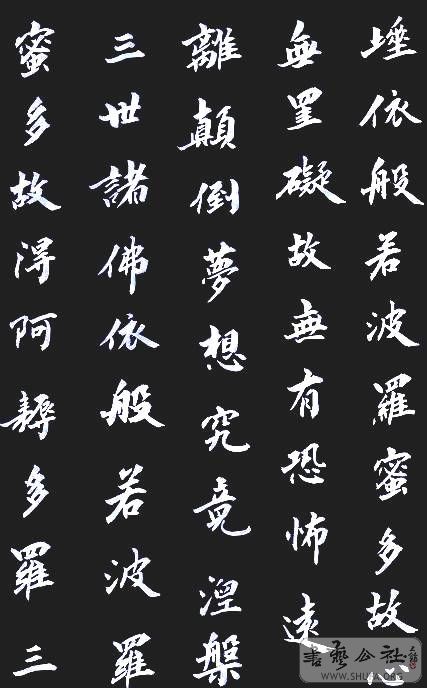 埵依般若波羅蜜多故心
無罣礙故無有恐怖遠
離顛倒夢想究竟涅槃
三世諸佛依般若波羅
蜜多故得阿耨多羅三
書藝公社
WWW.SHUFA.ORG